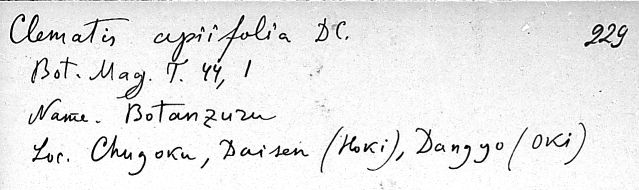 Clematis apiifolia DC. 229
Bot. Mag. T. 44, 1
Name. Botanzuru
Loc. Chugoku, Daisen (Hoki), Dangyo (Oki)